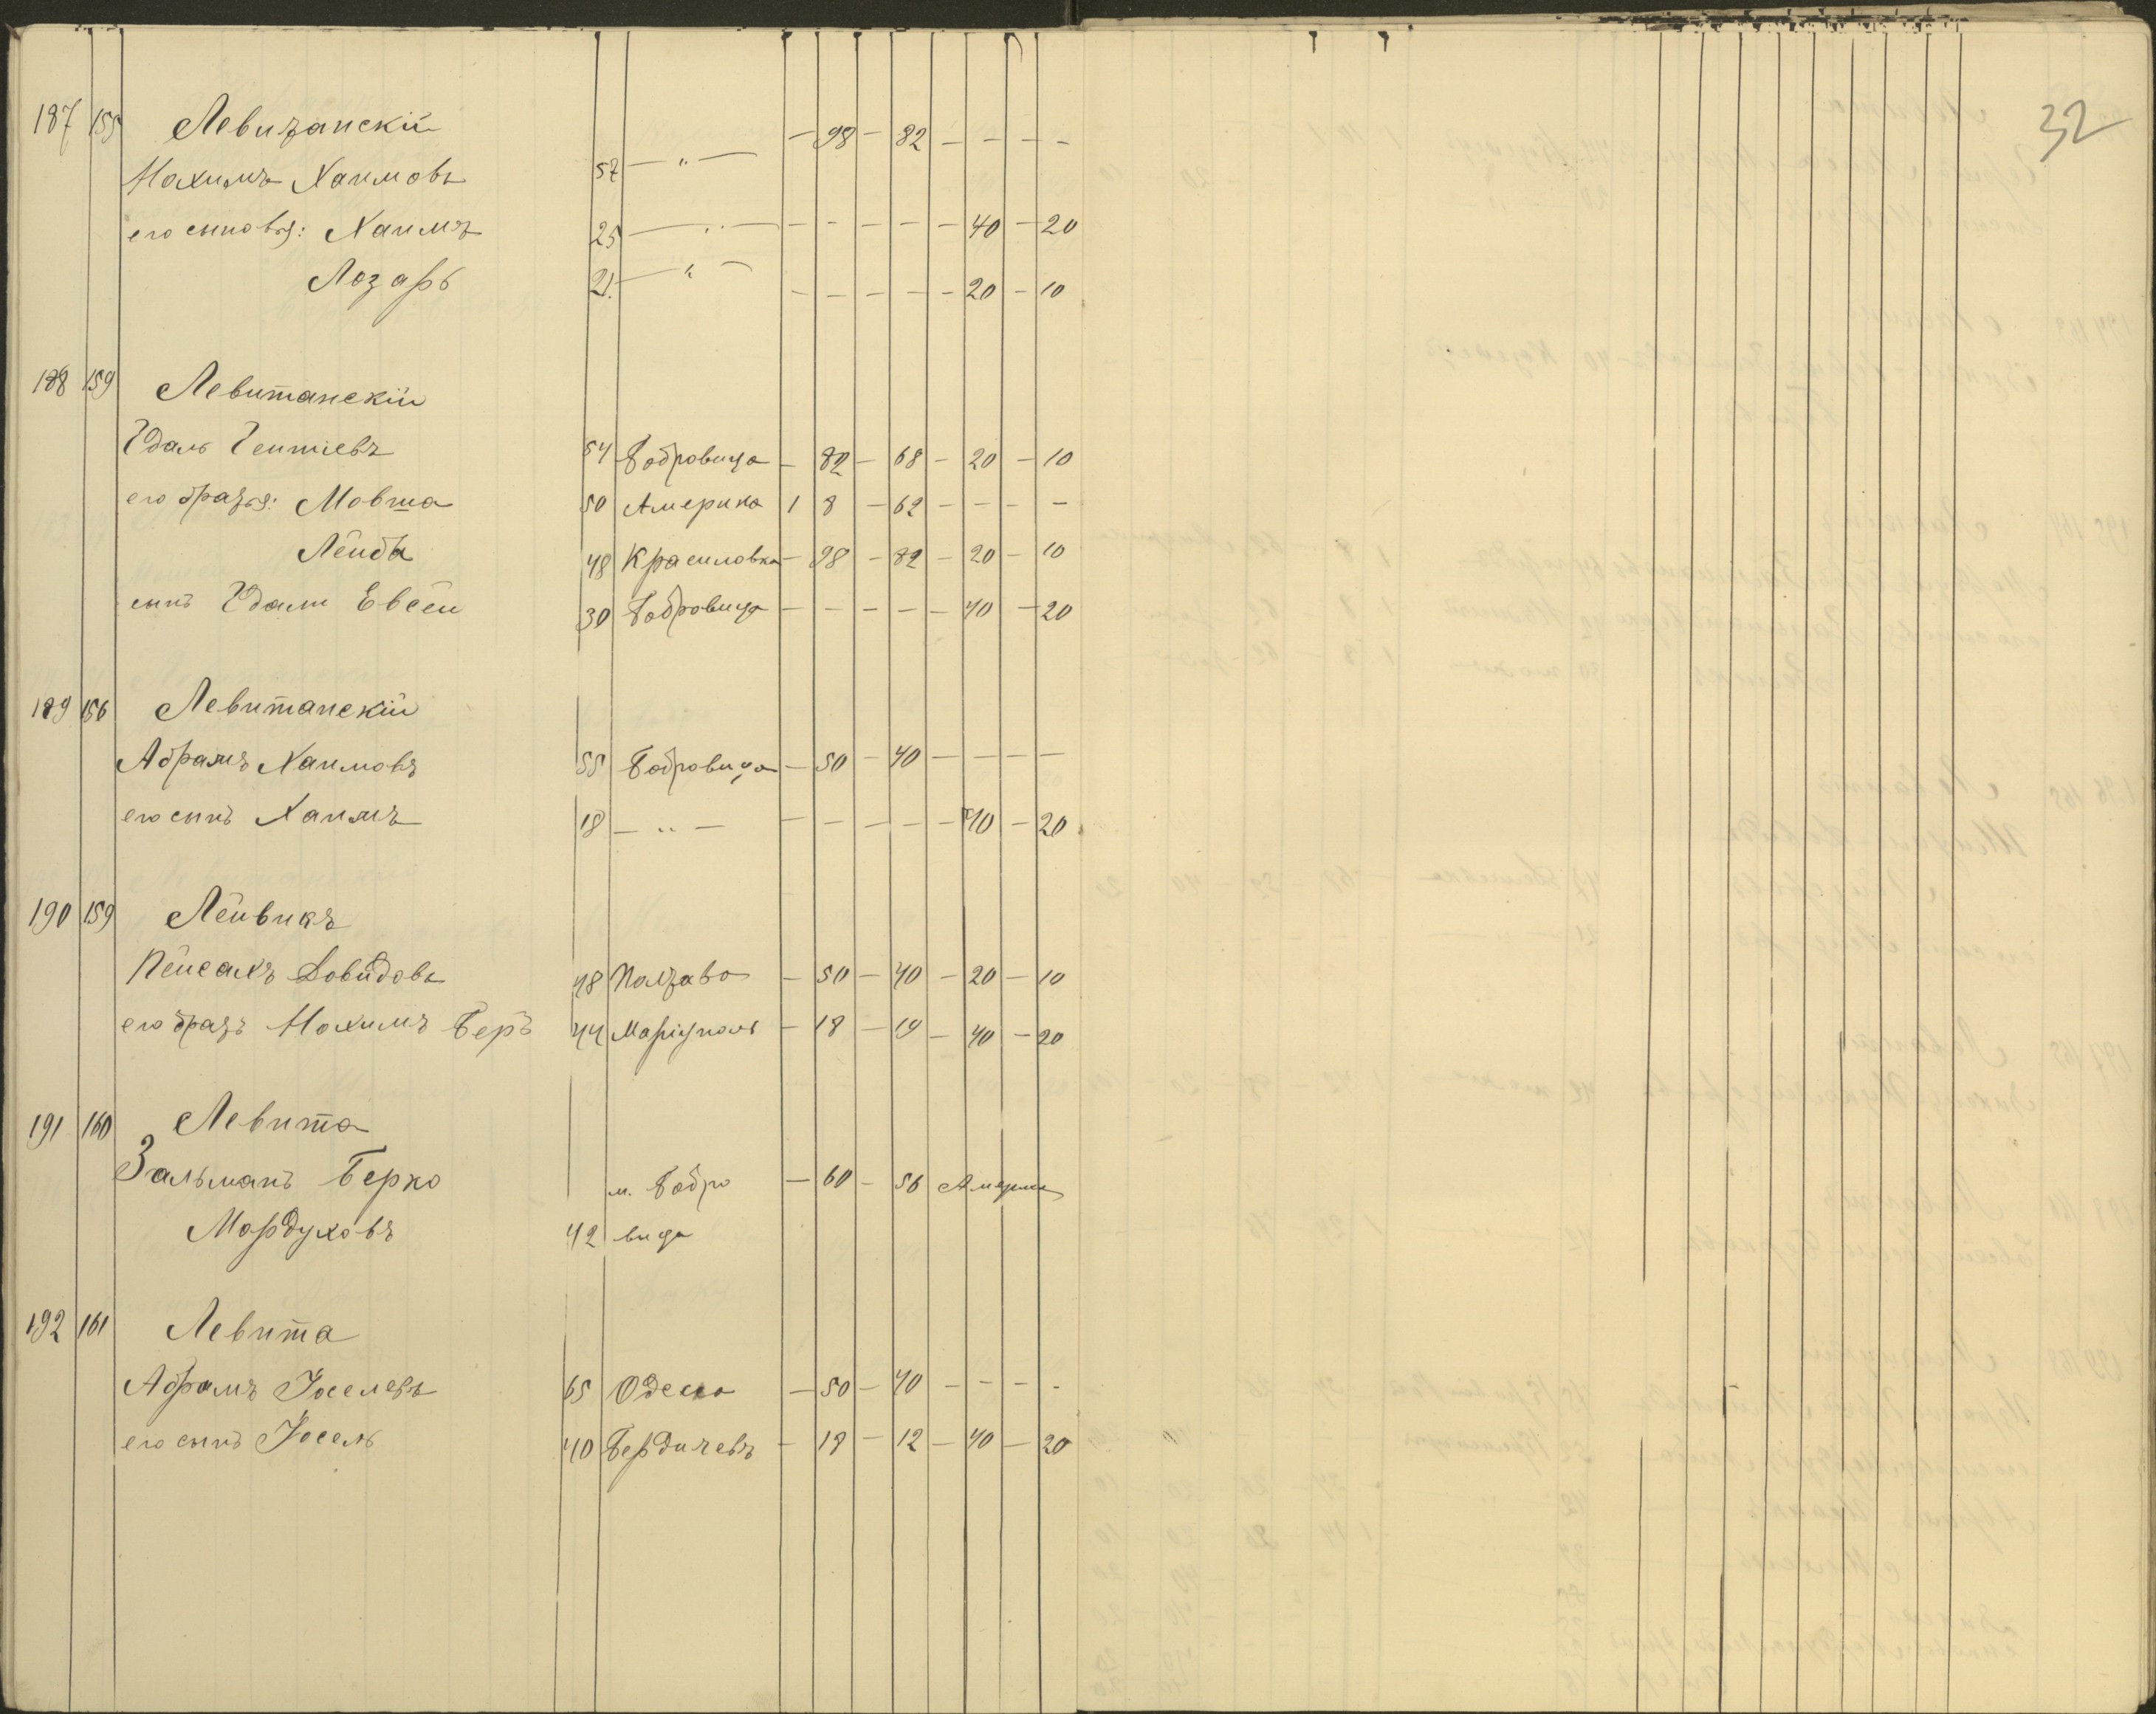 32
187 155 Левитанскій — 98 — 82 — — — —
Нохимъ Хаимовъ 57 — " —
его сыновья: Хаимъ 25 — " — — — — — — 40 — 20
Лозарь 21 — " — — — — — — 20 — 10
188 159 Левитанскій
Гдаль Гештіевъ 54 Бобровица — 82 — 68 — 20 — 10
его братья: Мовша 50 Америка 1 8 — 62 — — — —
Лейба 48 Красиловка — 98 — 82 — 20 — 10
сынъ Гдали Евсей 30 Бобровица — — — — — 40 — 20
189 156 Левитанскій
Абрамъ Хаимовъ 55 Бобровица — 50 — 40 — — — —
его сынъ Хаимъ 18 — " — — — — — — 40 — 20
190 159 Лейвикъ
Пейсахъ Довидовъ 48 Полтава — 50 — 40 — 20 — 10
его братъ Нохимъ Беръ 44 Маріуполь — 18 — 19 — 40 — 20
191 160 Левита
Зальманъ Берко м. Бобро — 60 — 56 Америк
Мордуховъ 42 вица
192 161 Левита
Абрамъ Іоселевъ 65 Одесса — 50 — 40 — — — —
его сынъ Іосель 40 Бердичевъ — 18 — 12 — 40 — 20